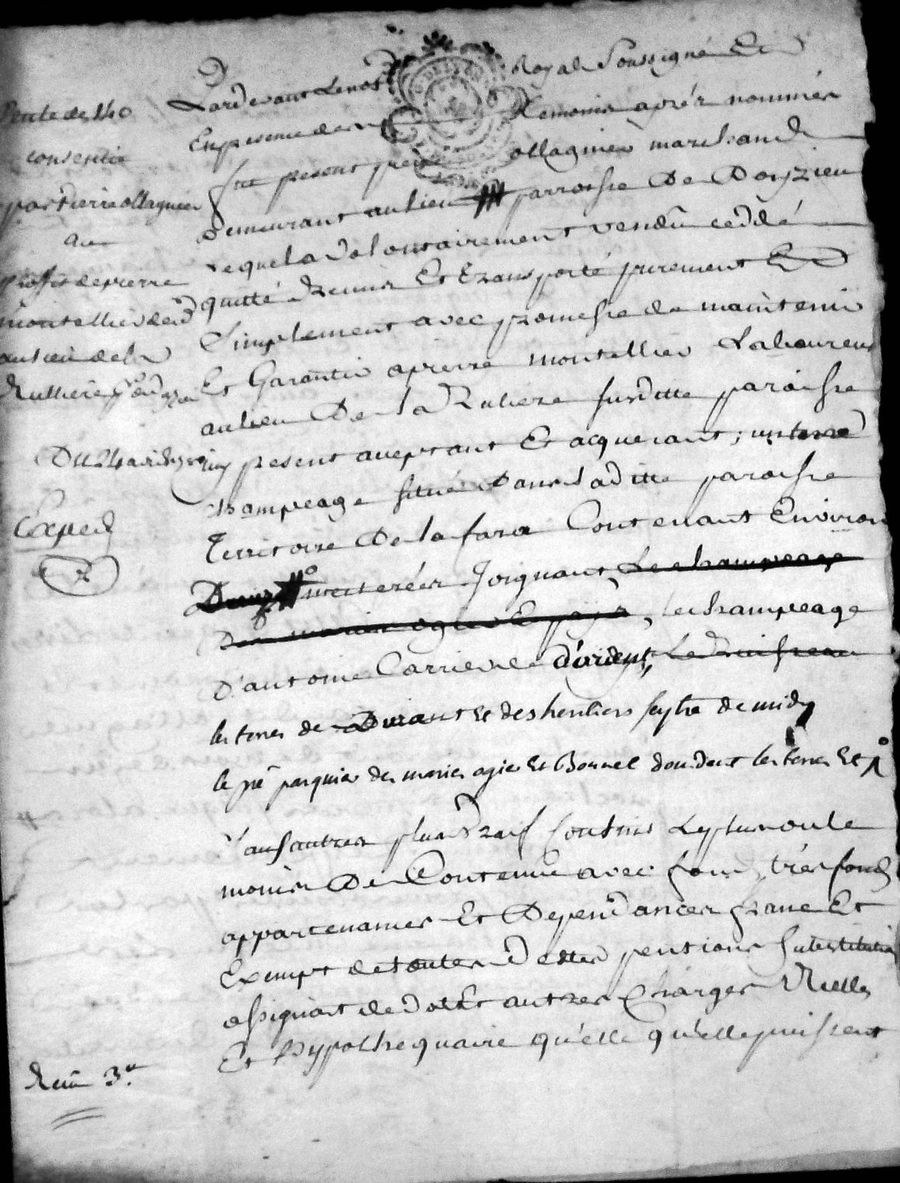 Vente de 140
consentie
par pierre ollagnier
au
profit de pierre
montellier dud
au lieu de la
Rulliere
Du 24
Expedj
Par devant le not Royal Soussigné Et
En presence des temoins aprér nommér
fut present pierre ollagnier marchand
demeurant au lieu parroisse De Doyzieu
lequel a volontairement vendu ceddé
quitté Remis Et transporté purement Et
Simplement avec promesse de maintenir
Et Garantir a pierre montellier Laboureur
au lieu De la Ruliere susditte paroisse
icy present aceptant Et acquerant, un tenn
champeage situé Dans laditte paroisse
Territoire De la fara Contenant Environ
meterées Joignant Le champeage
le champeage
D'antoine Carriere d'orient,
les terres de Durant et des heritiers seytre de midy
le pré paquier de maries ogier et Bonnel dou dent les terres Et
Sauf autres plus vraif Confins le plus ou le
moins De Contenüe avec fond, trés fond
appartenances Et Dependancer franc Et
Exempt de touter Detter pentions Substitution
assignat de dot Et autres Charger Reelles
Et hypothequaire qu'elle qu'elle puissent
Reçu 3